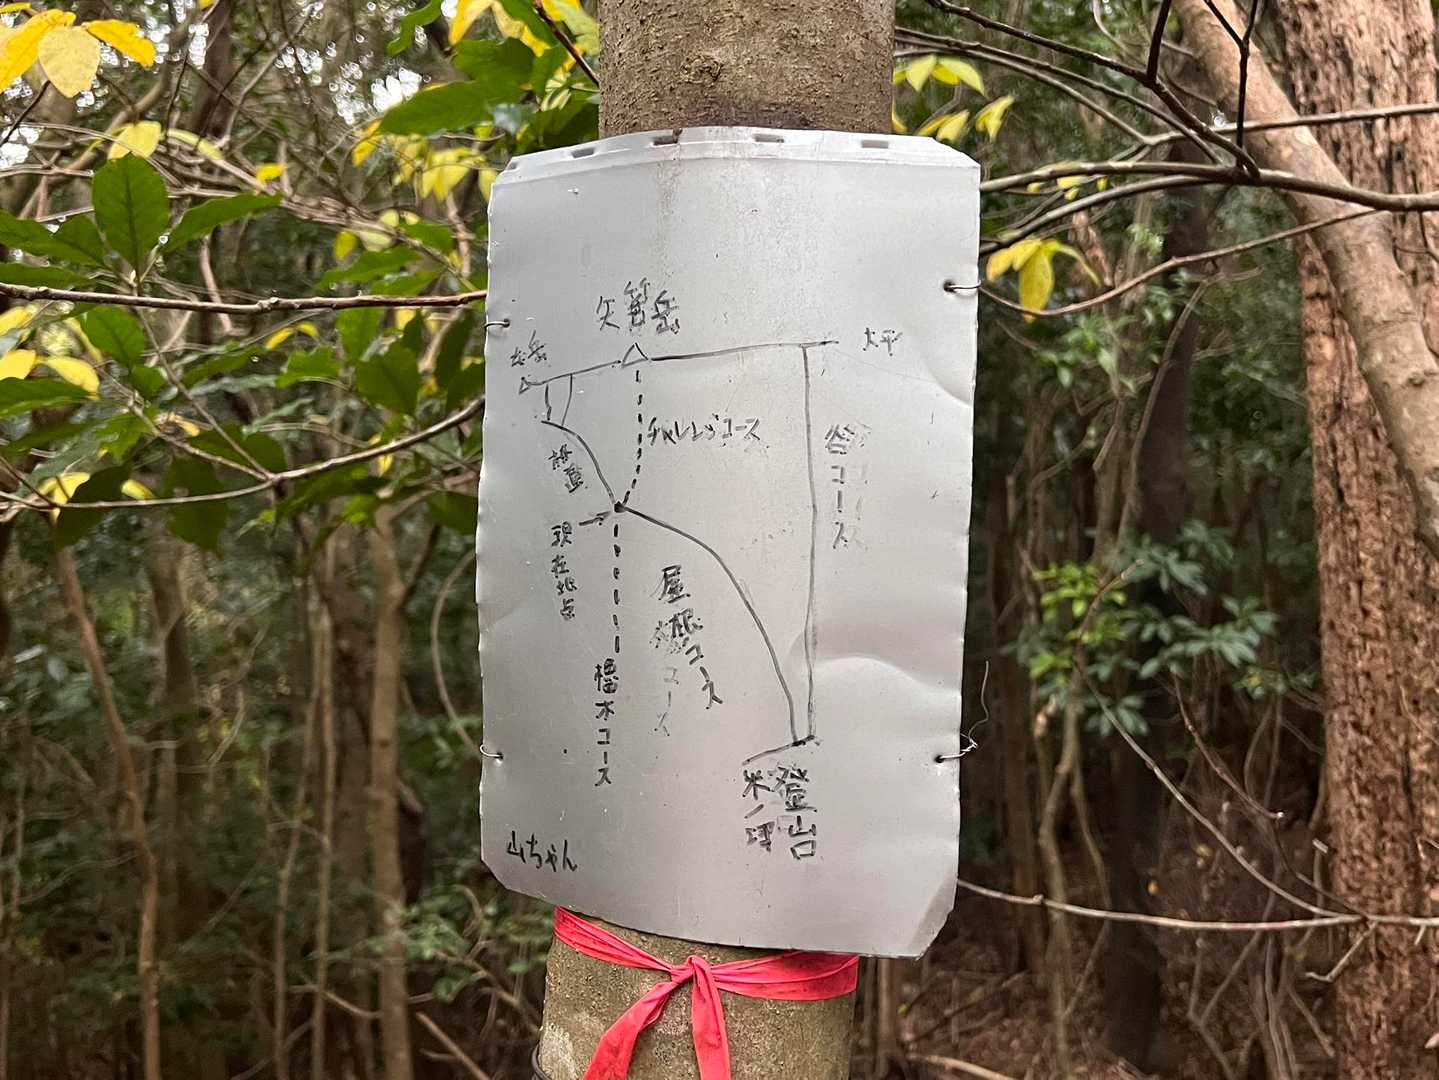 矢筈岳
女岳
大平
チャレンジコース
谷コース
現在地点
屋根コース
コース
水コース
登山口
米ノ
山ちゃん